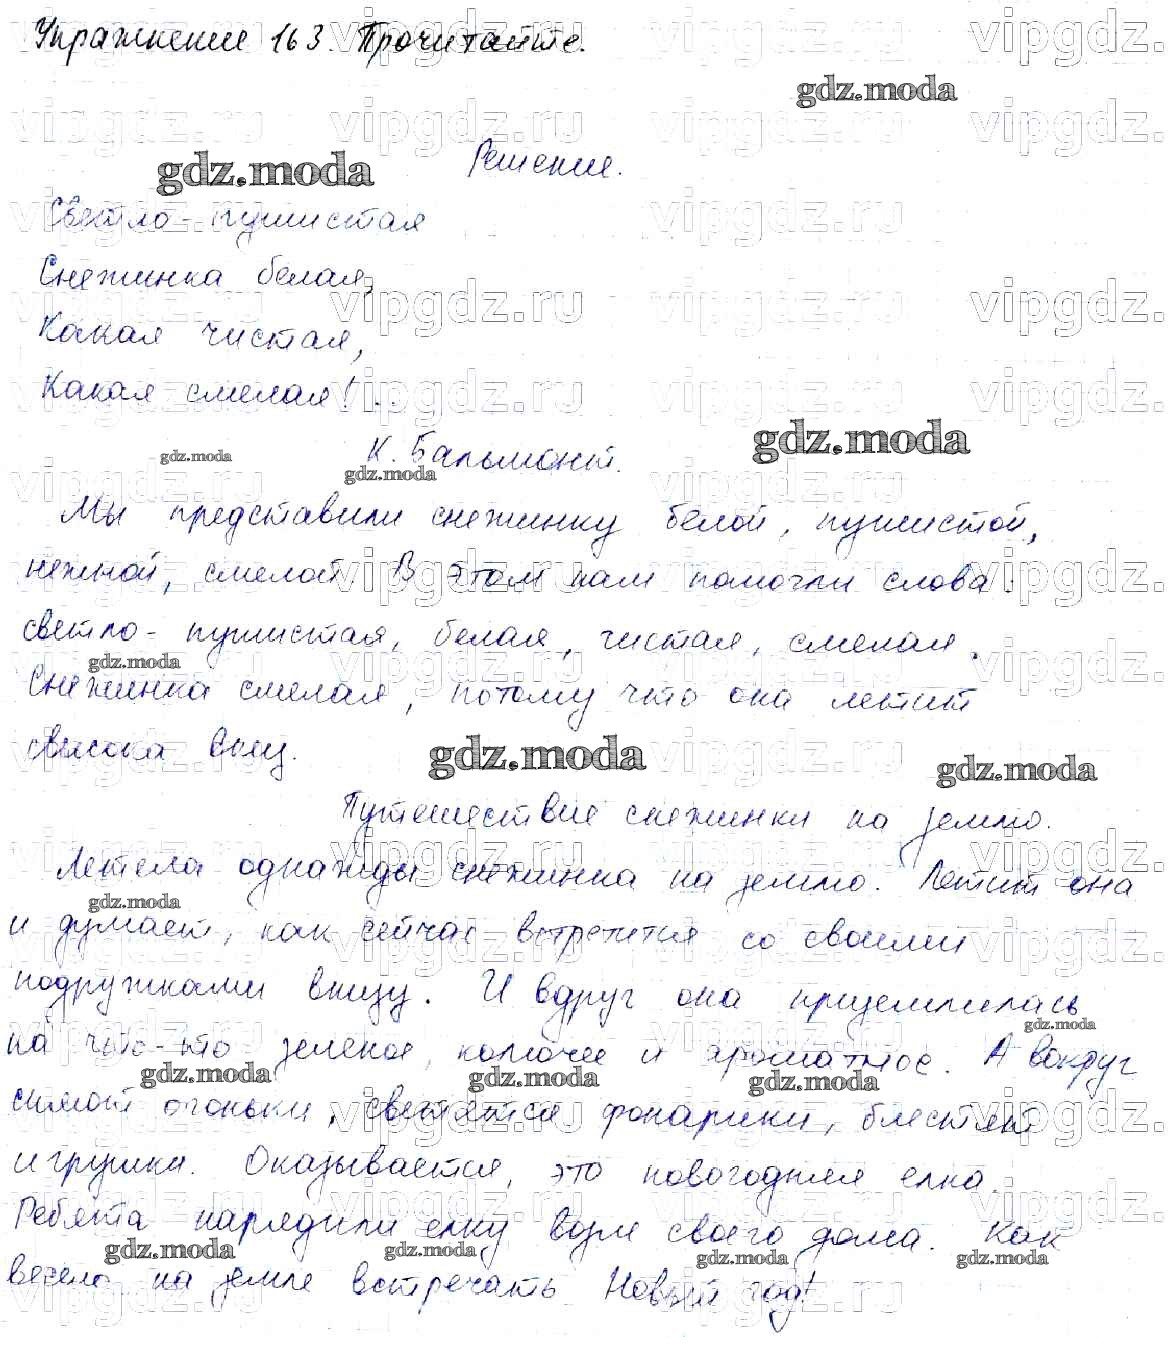 Упражнение 163. Прочитайте.
Решение.
Светло-пушистая
Снежинка белая,
Какая чистая,
Какая смелая!
К. Бальмонт.
Мы представили снежинку белой, пушистой,
нежной, смелой. В этом нам помогли слова:
светло-пушистая, белая, чистая, смелая.
Снежинка смелая, потому что она летит
свысока вниз.
Путешествие снежинки на землю.
Летела однажды снежинка на землю. Летит она
и думает, как сейчас встретится со своими
подружками внизу. И вдруг она приземлилась
на что-то зеленое, колючее и ароматное. А вокруг
сияют огоньки, светятся фонарики, блестят
игрушки. Оказывается, это новогодняя елка.
Ребята нарядили елку возле своего дома. Как
весело на земле встречать Новый год!
gdz.moda
vipgdz.ru